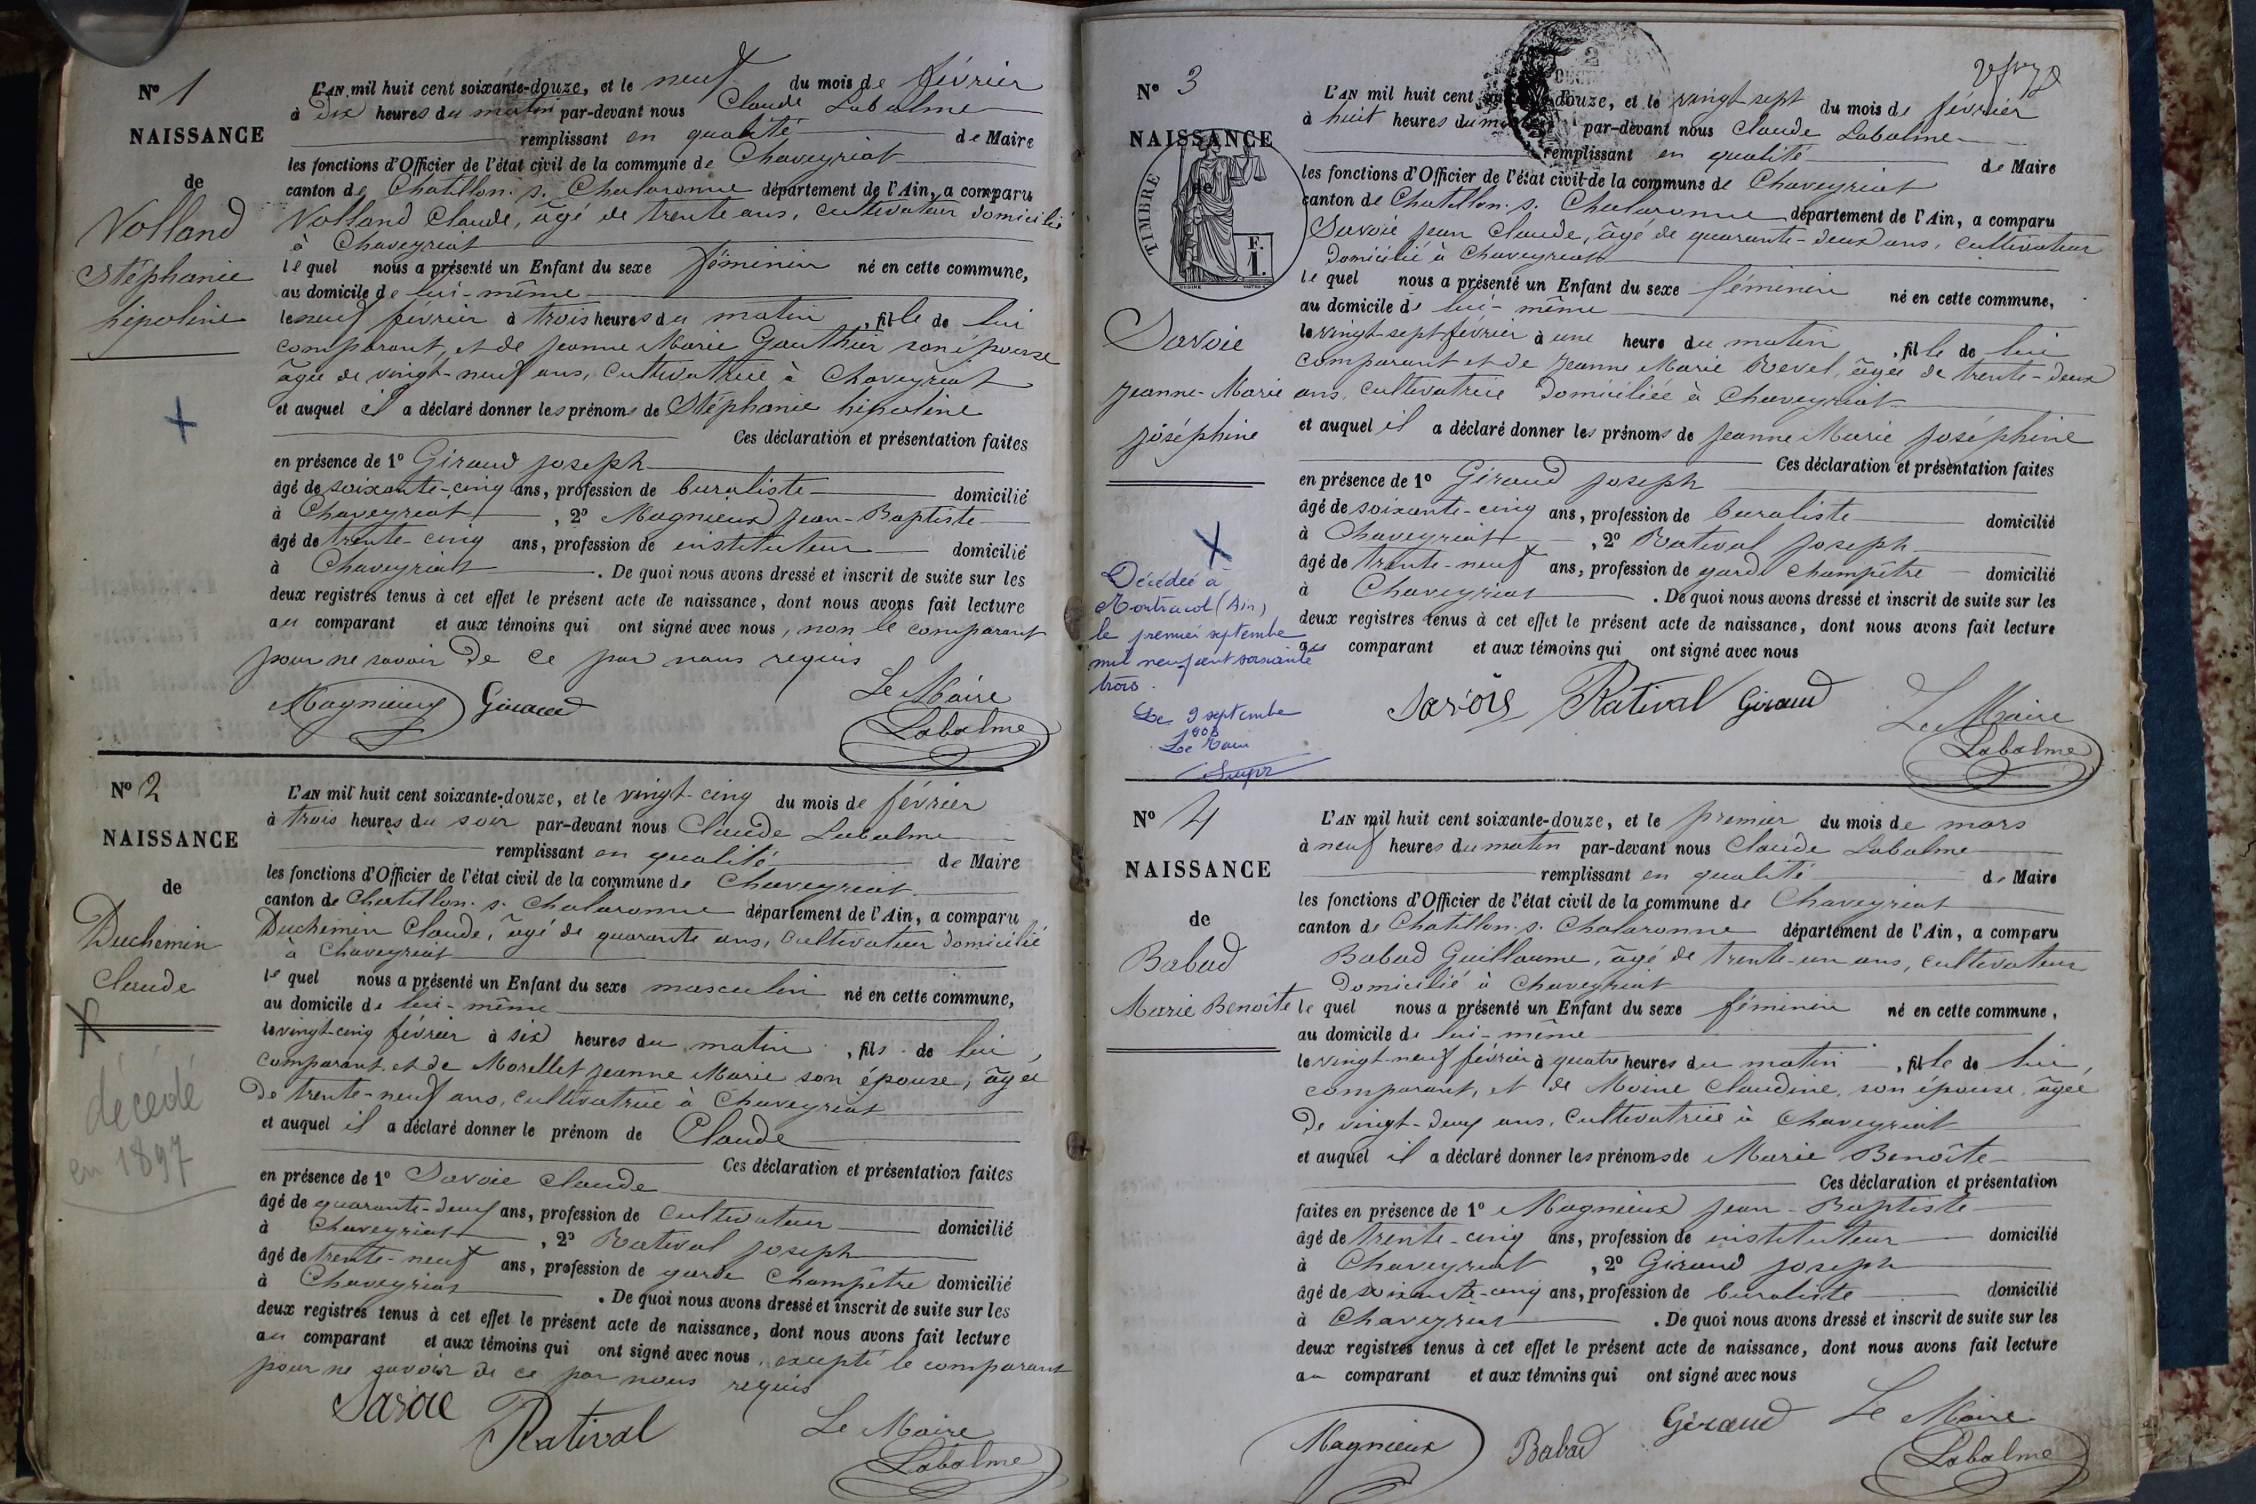 Nº 1
NAISSANCE
de
Volland
Stéphanie
hipoline
L'AN mil huit cent soixante-douze, et le neuf du mois de février
à Dix heures du matin par-devant nous Claude Labalme
remplissant en qualité de Maire
les fonctions d'Officier de l'état civil de la commune de Chaveyriat
canton de Chatillon. s. Chalaronne département de l'Ain, a comparu
Volland Claude, âgé de trente ans, cultivateur domicilié
à Chaveyriat
lequel nous a présenté un Enfant du sexe féminin né en cette commune,
au domicile de lui-même
le neuf février à trois heures du matin, fille de lui
comparant, et de Jeanne Marie Gauthier son épouse
âgée de vingt-neuf ans, cultivatrice à Chaveyriat
et auquel il a déclaré donner les prénoms de Stéphanie hipoline
Ces déclaration et présentation faites
en présence de 1º Giraud Joseph
âgé de soixante-cinq ans, profession de buraliste domicilié
à Chaveyriat, 2º Magnieux Jean-Baptiste
âgé de trente-cinq ans, profession de instituteur domicilié
à Chaveyriat. De quoi nous avons dressé et inscrit de suite sur les
deux registres tenus à cet effet le présent acte de naissance, dont nous avons fait lecture
au comparant et aux témoins qui ont signé avec nous, non le comparant
pour ne savoir de ce par nous requis
Magnieux Giraud Le Maire
Labalme
Nº 2
NAISSANCE
de
Duchemin
Claude
décédé
en 1897
L'AN mil huit cent soixante-douze, et le vingt-cinq du mois de février
à trois heures du soir par-devant nous Claude Labalme
remplissant en qualité de Maire
les fonctions d'Officier de l'état civil de la commune de Chaveyriat
canton de Chatillon. s. Chalaronne département de l'Ain, a comparu
Duchemin Claude, âgé de quarante ans, cultivateur domicilié
à Chaveyriat
lequel nous a présenté un Enfant du sexe masculin né en cette commune,
au domicile de lui-même
le vingt-cinq février à six heures du matin, fils de lui,
comparant, et de Morellet Jeanne Marie son épouse, âgée
de trente-neuf ans, cultivatrice à Chaveyriat
et auquel il a déclaré donner le prénom de Claude
Ces déclaration et présentation faites
en présence de 1º Savoie Claude
âgé de quarante-deux ans, profession de cultivateur domicilié
à Chaveyriat, 2º Rativol Joseph
âgé de trente-neuf ans, profession de garde champêtre domicilié
à Chaveyriat. De quoi nous avons dressé et inscrit de suite sur les
deux registres tenus à cet effet le présent acte de naissance, dont nous avons fait lecture
au comparant et aux témoins qui ont signé avec nous, excepté le comparant
pour ne savoir de ce par nous requis
Savoie Rativol Le Maire
Labalme
Nº 3
NAISSANCE
de
TIMBRE
1 F.
Savoie
Jeanne-Marie
Joséphine
Décédée à
Montracol (Ain)
le premier septembre
mil neuf cent soixante
trois.
Le 9 septembre
Le Maire
L'AN mil huit cent douze, et le vingt sept du mois de février
à huit heures du par-devant nous Claude Labalme
remplissant en qualité de Maire
les fonctions d'Officier de l'état civil de la commune de Chaveyriat
canton de Chatillon. s. Chalaronne département de l'Ain, a comparu
Savoie Jean Claude, âgé de quarante-deux ans, cultivateur
domicilié à Chaveyriat
lequel nous a présenté un Enfant du sexe féminin né en cette commune,
au domicile de lui-même
le vingt-sept février à une heure du matin, fille de lui
comparant et de Jeanne Marie Revel, âgée de trente-deux
ans, cultivatrice domiciliée à Chaveyriat
et auquel il a déclaré donner les prénoms de Jeanne Marie Joséphine
Ces déclaration et présentation faites
en présence de 1º Giraud Joseph
âgé de soixante-cinq ans, profession de buraliste domicilié
à Chaveyriat, 2º Rativol Joseph
âgé de trente-neuf ans, profession de garde champêtre domicilié
à Chaveyriat. De quoi nous avons dressé et inscrit de suite sur les
deux registres tenus à cet effet le présent acte de naissance, dont nous avons fait lecture
au comparant et aux témoins qui ont signé avec nous
Savoie Rativol Giraud Le Maire
Labalme
Nº 4
NAISSANCE
de
Babad
Marie Benoîte
L'AN mil huit cent soixante-douze, et le premier du mois de mars
à neuf heures du matin par-devant nous Claude Labalme
remplissant en qualité de Maire
les fonctions d'Officier de l'état civil de la commune de Chaveyriat
canton de Chatillon. s. Chalaronne département de l'Ain, a comparu
Babad Guillaume, âgé de trente-un ans, cultivateur
domicilié à Chaveyriat
lequel nous a présenté un Enfant du sexe féminin né en cette commune,
au domicile de lui-même
le vingt-neuf février à quatre heures du matin, fille de lui,
comparant, et de Moine Claudine, son épouse, âgée
de vingt-deux ans, cultivatrice à Chaveyriat
et auquel il a déclaré donner les prénoms de Marie Benoîte
Ces déclaration et présentation
faites en présence de 1º Magnieux Jean-Baptiste
âgé de trente-cinq ans, profession de instituteur domicilié
à Chaveyriat, 2º Giraud Joseph
âgé de soixante-cinq ans, profession de buraliste domicilié
à Chaveyriat. De quoi nous avons dressé et inscrit de suite sur les
deux registres tenus à cet effet le présent acte de naissance, dont nous avons fait lecture
au comparant et aux témoins qui ont signé avec nous
Magnieux Babad Giraud Le Maire
Labalme